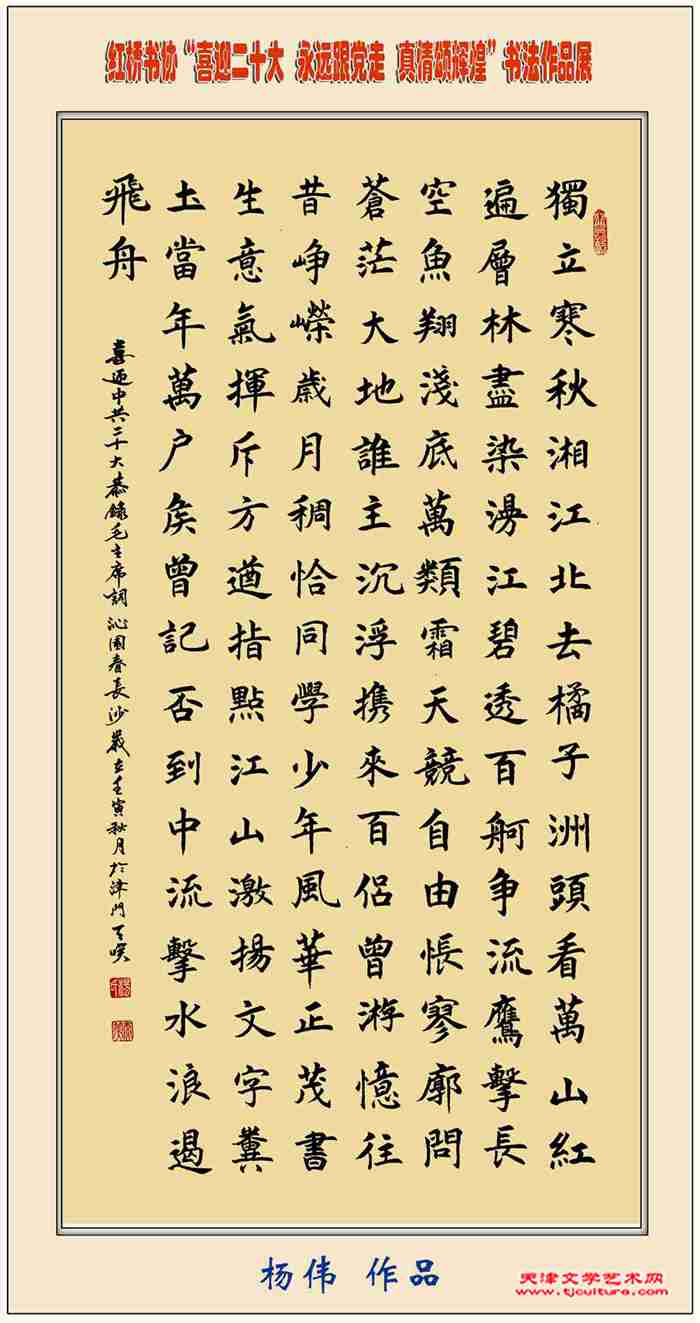 红桥书协“喜迎二十大 永远跟党走 真情颂辉煌”书法作品展
獨立寒秋湘江北去橘子洲頭看萬山紅
遍層林盡染漫江碧透百舸争流鷹擊長
空魚翔淺底萬類霜天競自由悵寥廓問
蒼茫大地誰主沉浮携來百侣曾游憶往
昔崢嶸歲月稠恰同學少年風華正茂書
生意氣揮斥方遒指點江山激揚文字糞
土當年萬户侯曾記否到中流擊水浪遏
飛舟
喜迎中共二十大恭錄毛主席詞沁園春長沙歲在壬寅秋月於津門
杨伟 作品
天津文学艺术网
www.tjculture.com